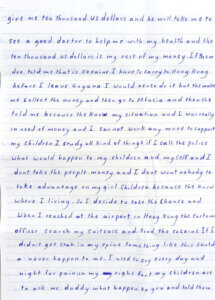 give me ten thousand US dollars and he will take me to
see a good doctor to help me with my health and the
ten thousand us dollars is my rest of my money If them
dex told me that is cocaine I have to carry to Hong Kong
before I leave Guyana I would never do it but the make
me collect the money and then go to and then the
told me because the know my situation and I was really
in need of money and I can not work any more to support
my children. I study all kind of things if I call the police
what would happen to my children and my self and I
dont take the people money and I dont want nobody to
take advantage on my girl children because the know
where I living. So I decide to take the chance and
When I reached at the airport in Hong Kong the custom
officer search my suitcase and find the cocaine If I
didn't get stab in my spine Something like this could
a never happen to me. I used to cry every day and
night for pain in my right foot my children use
to ask me daddy what happen to you and told them